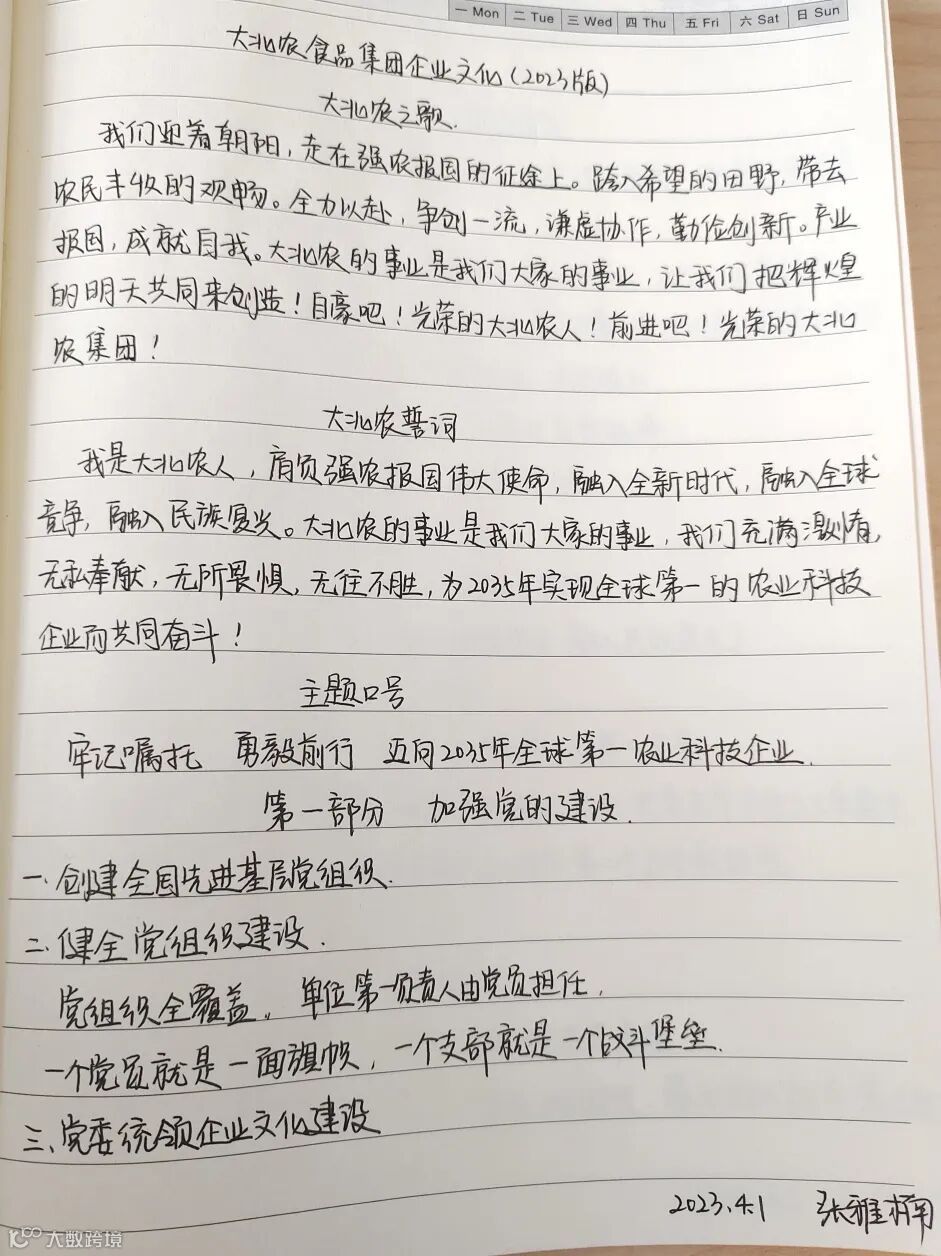 一 Mon 二 Tue 三 Wed 四 Thu 五 Fri 六 Sat 日 Sun
大北农食品集团企业文化(2023版)
大北农之歌.
我们迎着朝阳,走在强农报国的征途上。跨入希望的田野,带去
农民丰收的欢畅。全力以赴,争创一流,谦虚协作,勤俭创新。产业
报国,成就自我。大北农的事业是我们大家的事业,让我们把辉煌
的明天共同来创造!自豪吧!光荣的大北农人!前进吧!光荣的大北
农集团!
大北农誓词
我是大北农人,肩负强农报国伟大使命,融入全新时代,融入全球
竞争,融入民族复兴。大北农的事业是我们大家的事业,我们充满激情,
无私奉献,无所畏惧,无往不胜,为2035年实现全球第一的农业科技
企业而共同奋斗!
主题口号
牢记嘱托 勇毅前行 迈向2035年全球第一农业科技企业.
第一部分 加强党的建设.
一.创建全国先进基层党组织.
二.健全党组织建设.
党组织全覆盖。单位第一负责人由党员担任.
一个党员就是一面旗帜,一个支部就是一个战斗堡垒.
三、党委统领企业文化建设
2023.4.1 张雅楠
大数跨境